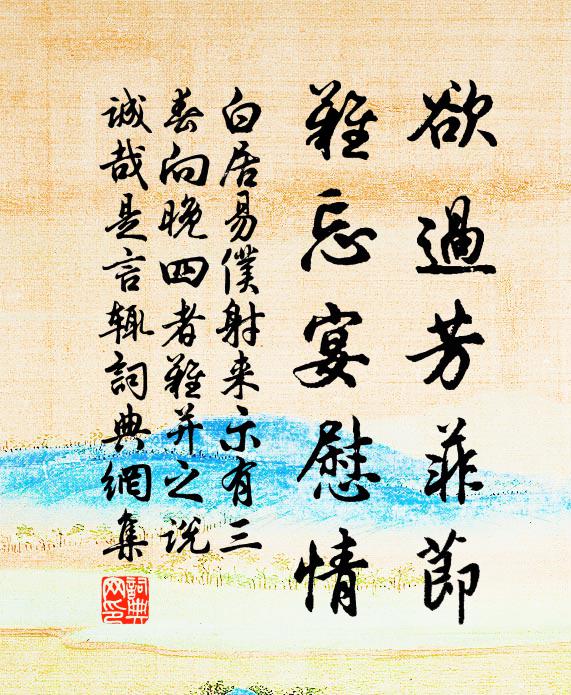 欲過芳菲節
難忘宴慰情
白居易僕射来示有三
春向晚四者難并之说
誠哉是言輒詞典網集
詞典网印